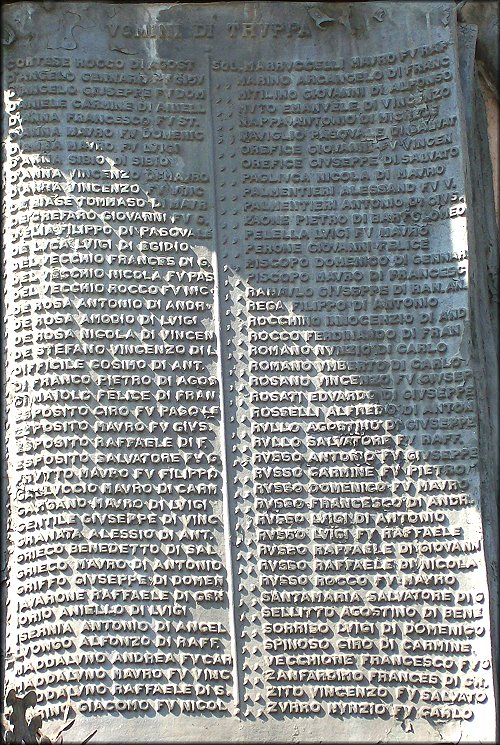 VOMINI DI TRVPPA
CORTESE ROCCO DI AGOST
D'ANGELO GENNARO FV GIOV
D'ANGELO GIVSEPPE FV DOM
DANIELE CARMINE DI ANIELL
FRANCESCO FV ST.
MAVRO FV DOMENIC
MAVRO FV LVIGI
SIBIO DI SIBIO
VINCENZO DI MAVRO
VINCENZO FV VINC
TOMMASO FV MAVR
DE CREFARO GIOVANNI FV G
FILIPPO DI PASQVALE
DE LVCA LVIGI DI EGIDIO
DEL VECCHIO FRANCES DI G
DEL VECCHIO NICOLA FV PAS
DEL VECCHIO ROCCO FV NIC
DE ROSA ANTONIO DI ANDR
DE ROSA AMODIO DI LVIGI
DE ROSA NICOLA DI VINCEN
DE STEFANO VINCENZO DI L
DIFFICILE COSIMO DI ANT.
DI FRANCO PIETRO DI AGOS
DI MAIOLO FELICE DI FRAN
ESPOSITO CIRO FV PASQLE
ESPOSITO MAVRO FV GIVS
ESPOSITO RAFFAELE DI F.
ESPOSITO SALVATORE FV G
MAVRO FV FILIPPO
GALLVCCIO MAVRO DI CARM
GARGANO MAVRO DI LVIGI
GENTILE GIVSEPPE DI VINC
GRANATA ALESSIO DI ANT.
GRIECO BENEDETTO DI SAL
GRIECO MAVRO DI ANTONIO
GRIFFO GIVSEPPE DI DOMEN
IAVARONE RAFFAELE DI GER
IORIO ANIELLO DI LVIGI
ISERNIA ANTONIO DI ANGEL
LONGO ALFONZO DI RAFF.
MADDALVNO ANDREA FV CAR
MADDALVNO MAVRO FV VINC
MADDALVNO RAFFAELE DI S.
GIACOMO FV NICOL
SOL. MABRVCCELLI MAVRO FV RAFF
MARINO ARCANGELO DI FRANC
MITILINO GIOVANNI DI ALFONSO
MVTO EMANVELE DI VINCENZO
NAPPA ANTONIO DI MICHELE
NAVIGLIO PASQVALE DI SALVAT
OREFICE GIOVANNI FV VINCEN
OREFICE GIVSEPPE DI SALVATO
PAGLIVCA NICOLA DI MAVRO
PALMENTIERI ALESSAND FV V.
PALMENTIERI ANTONIO DI GIVS
PAONE PIETRO DI BARTOLOMEO
PELELLA LVIGI FV MAVRO
PERONE GIOVANNI FELICE
PISCOPO DOMENICO DI GENNAR
PISCOPO MAVRO DI FRANCESC
GIVSEPPE DI RAN. AN
REGA FILIPPO DI ANTONIO
ROCCHINO INNOCENZIO DI AND
ROCCO FERDINANDO DI FRAN
ROMANO NVNZIO DI CARLO
ROMANO VMBERTO DI CARLO
ROSANO VINCENZO FV GIVSE
ROSATI EDVARDO DI GIVSEPPE
ROSSELLI ALFREDO DI ANTON
RVLLO AGOSTINO DI GIVSEPPE
RVLLO SALVATORE FV RAFF.
RVSSO ANTONIO FV GIVSEPPE
RVSSO CARMINE FV PIETRO
RVSSO DOMENICO FV MAVRO
RVSSO FRANCESCO DI ANDR.
RVSSO LVIGI DI ANTONIO
RVSSO LVIGI FV RAFFAELE
RVSSO RAFFAELE DI GIOVANNI
RVSSO RAFFAELE DI NICOLA
RVSSO ROCCO FV MAVRO
SANTAMARIA SALVATORE DI G
SELLITTO AGOSTINO DI BENE
SORRISO LVIGI DI DOMENICO
SPINOSO CIRO DI CARMINE
VECCHIONE FRANCESCO FV G
ZANFARDINO FRANCES DI CR
ZITO VINCENZO FV SALVATO
ZVRRO NVNZIO FV CARLO